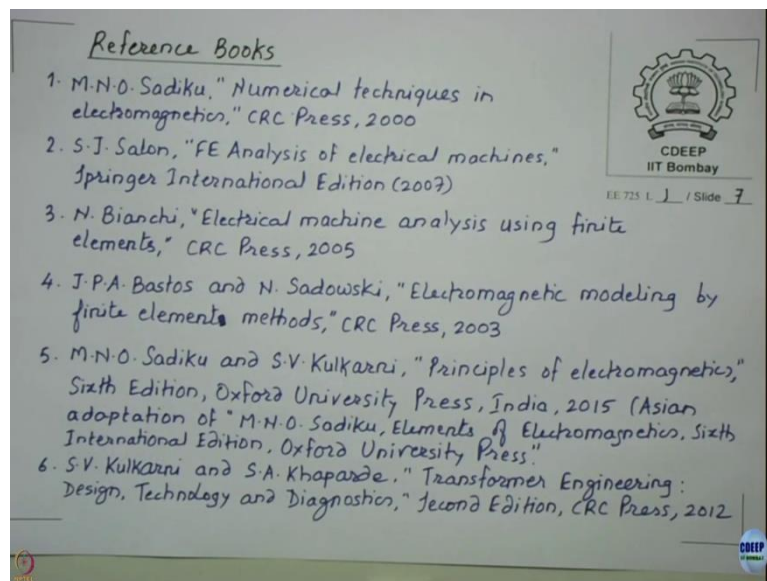 Reference Books
1. M.N.O. Sadiku, "Numerical techniques in
electromagnetics," CRC Press, 2000
2. S.J. Salon, "FE Analysis of electrical machines,"
Springer International Edition (2007)
3. N. Bianchi, "Electrical machine analysis using finite
elements," CRC Press, 2005
4. J.P.A. Bastos and N. Sadowski, "Electromagnetic modeling by
finite element methods," CRC Press, 2003
5. M.N.O. Sadiku and S.V. Kulkarni, "Principles of electromagnetics,"
Sixth Edition, Oxford University Press, India, 2015 (Asian
adaptation of "M.N.O. Sadiku, Elements of Electromagnetics, Sixth
International Edition, Oxford University Press."
6. S.V. Kulkarni and S.A. Khaparde, "Transformer Engineering:
Design, Technology and Diagnostics," Second Edition, CRC Press, 2012
CDEEP
IIT Bombay
EE 725 L 1 / Slide 7
CDEEP
IIT BOMBAY
NPTEL